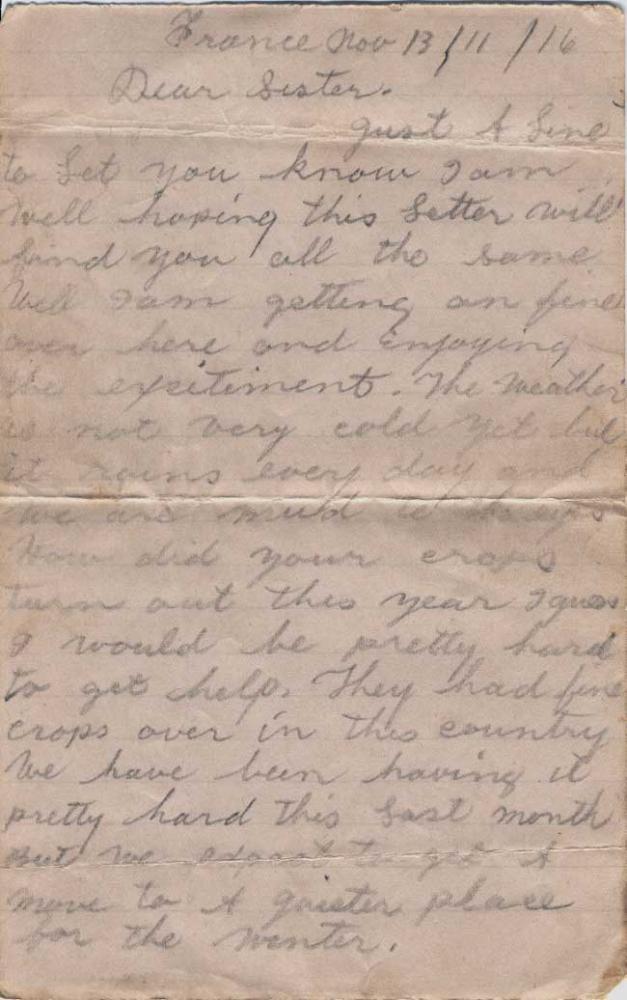 France Nov 13/11/16
Dear Sister.
Just A Line
to Let you know I am
Well hoping this Letter will
find you all the same
Well I am getting on fine
over here and Enjoying
the exsitiment. The Weather
is not very cold yet but
it rains every day and
we are mud
How did your crops
turn out this year I guess
I would be pretty hard
to get help. They had fine
crops over in this country
We have been having it
pretty hard this Last month
But we expect to get A
move to A quieter place
for the winter.